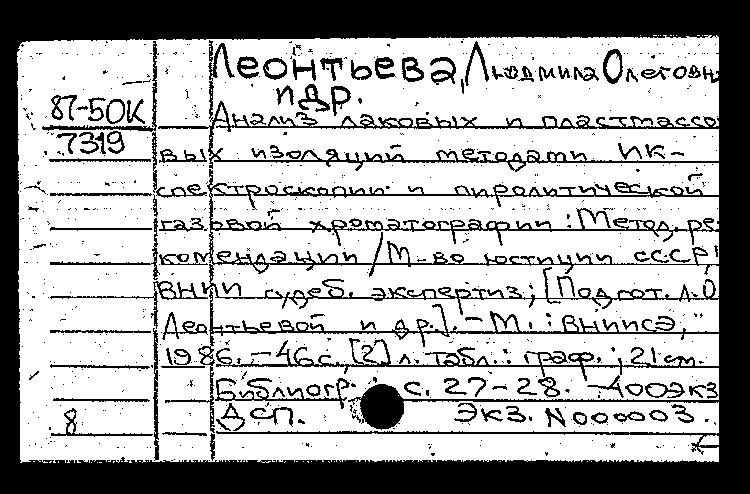 Леонтьева, Людмила Олеговн
и др.
87-50К
7319
Анализ лаковых и пластмассо
вых изоляций методами ИК-
спектроскопии и пиролитической
газовой хроматографии : Метод. ре
комендации / М-во юстиции СССР
ВНИИ судеб. экспертиз; [Подгот. Л.О
Леонтьевой и др.]. - М. : ВНИИСЭ,
1986. - 46 с., [2] л. табл. : граф. ; 21 см.
Библиогр. : с. 27-28. - 400 экз
ДСП. экз. N 000003.
8